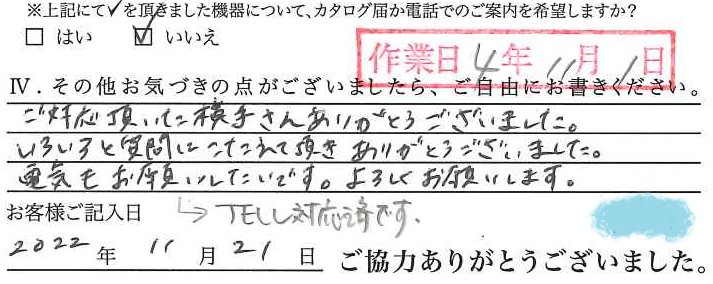 ※上記にて✓を頂きました機器について、カタログ届か電話でのご案内を希望しますか?
□ はい ☑ いいえ
作業日 4年 11月 1日
Ⅳ．その他お気づきの点がございましたら、ご自由にお書きください。
ご対応頂いた横手さんありがとうございました。
いろいろと質問にこたえて頂きありがとうございました。
電気もお願いしたいです。よろしくお願いします。
お客様ご記入日 ↳TELL対応済です.
2022 年 11 月 21 日 ご協力ありがとうございました。